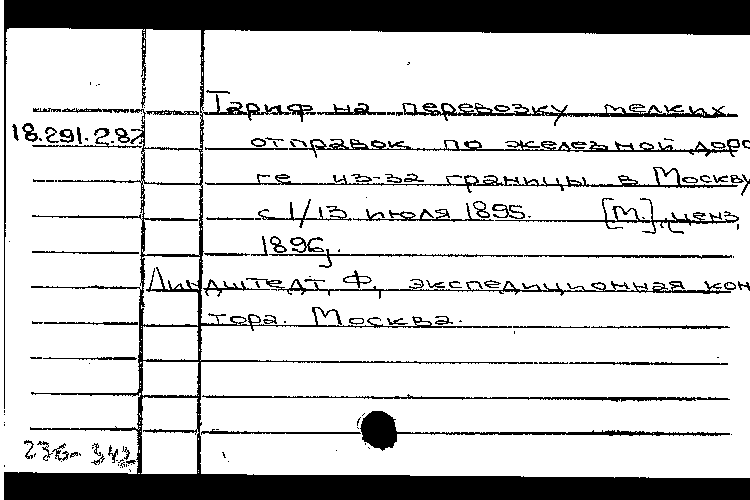 Тариф на перевозку мелких
18.291.2.87 отправок по железной доро
ге из-за границы в Москву
с 1/13 июля 1895. [М.], ценз.
1896.
Линдштедт, Ф., экспедиционная кон
тора. Москва.
236-342